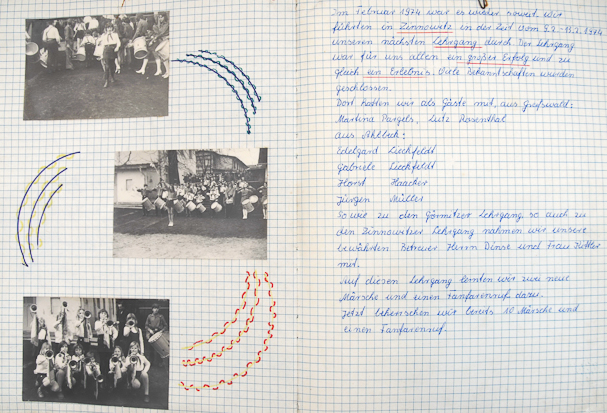 Im Februar 1974 war es wieder soweit. Wir
führten in Zinnowitz in der Zeit vom 9.2.-17.2.1974
unseren nächsten Lehrgang durch. Der Lehrgang
war für uns allen ein großer Erfolg und zu
gleich ein Erlebnis. Viele Bekanntschaften wurden
geschlossen.
Dort hatten wir als Gäste mit, aus Greifswald:
Martina Pargels, Lutz Rosenthal
aus Ahlbeck:
Edelgard Lieckfeldt
Gabriele Lieckfeldt
Horst Haacker
Jürgen Müller
So wie zu den Görmitzer Lehrgang so auch zu
den Zinnowitzer Lehrgang nahmen wir unsere
bewährten Betreuer Herrn Dinse und Frau
mit.
Auf diesen Lehrgang lernten wir zwei neue
Märsche und einen Fanfarenruf dazu.
Jetzt beherrschen wir bereits 10 Märsche und
einen Fanfarenruf.